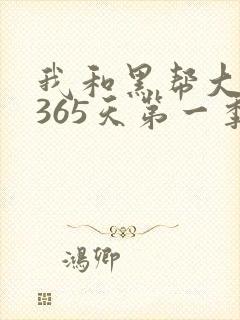 我和黑帮大
365天第一季
鸿卿